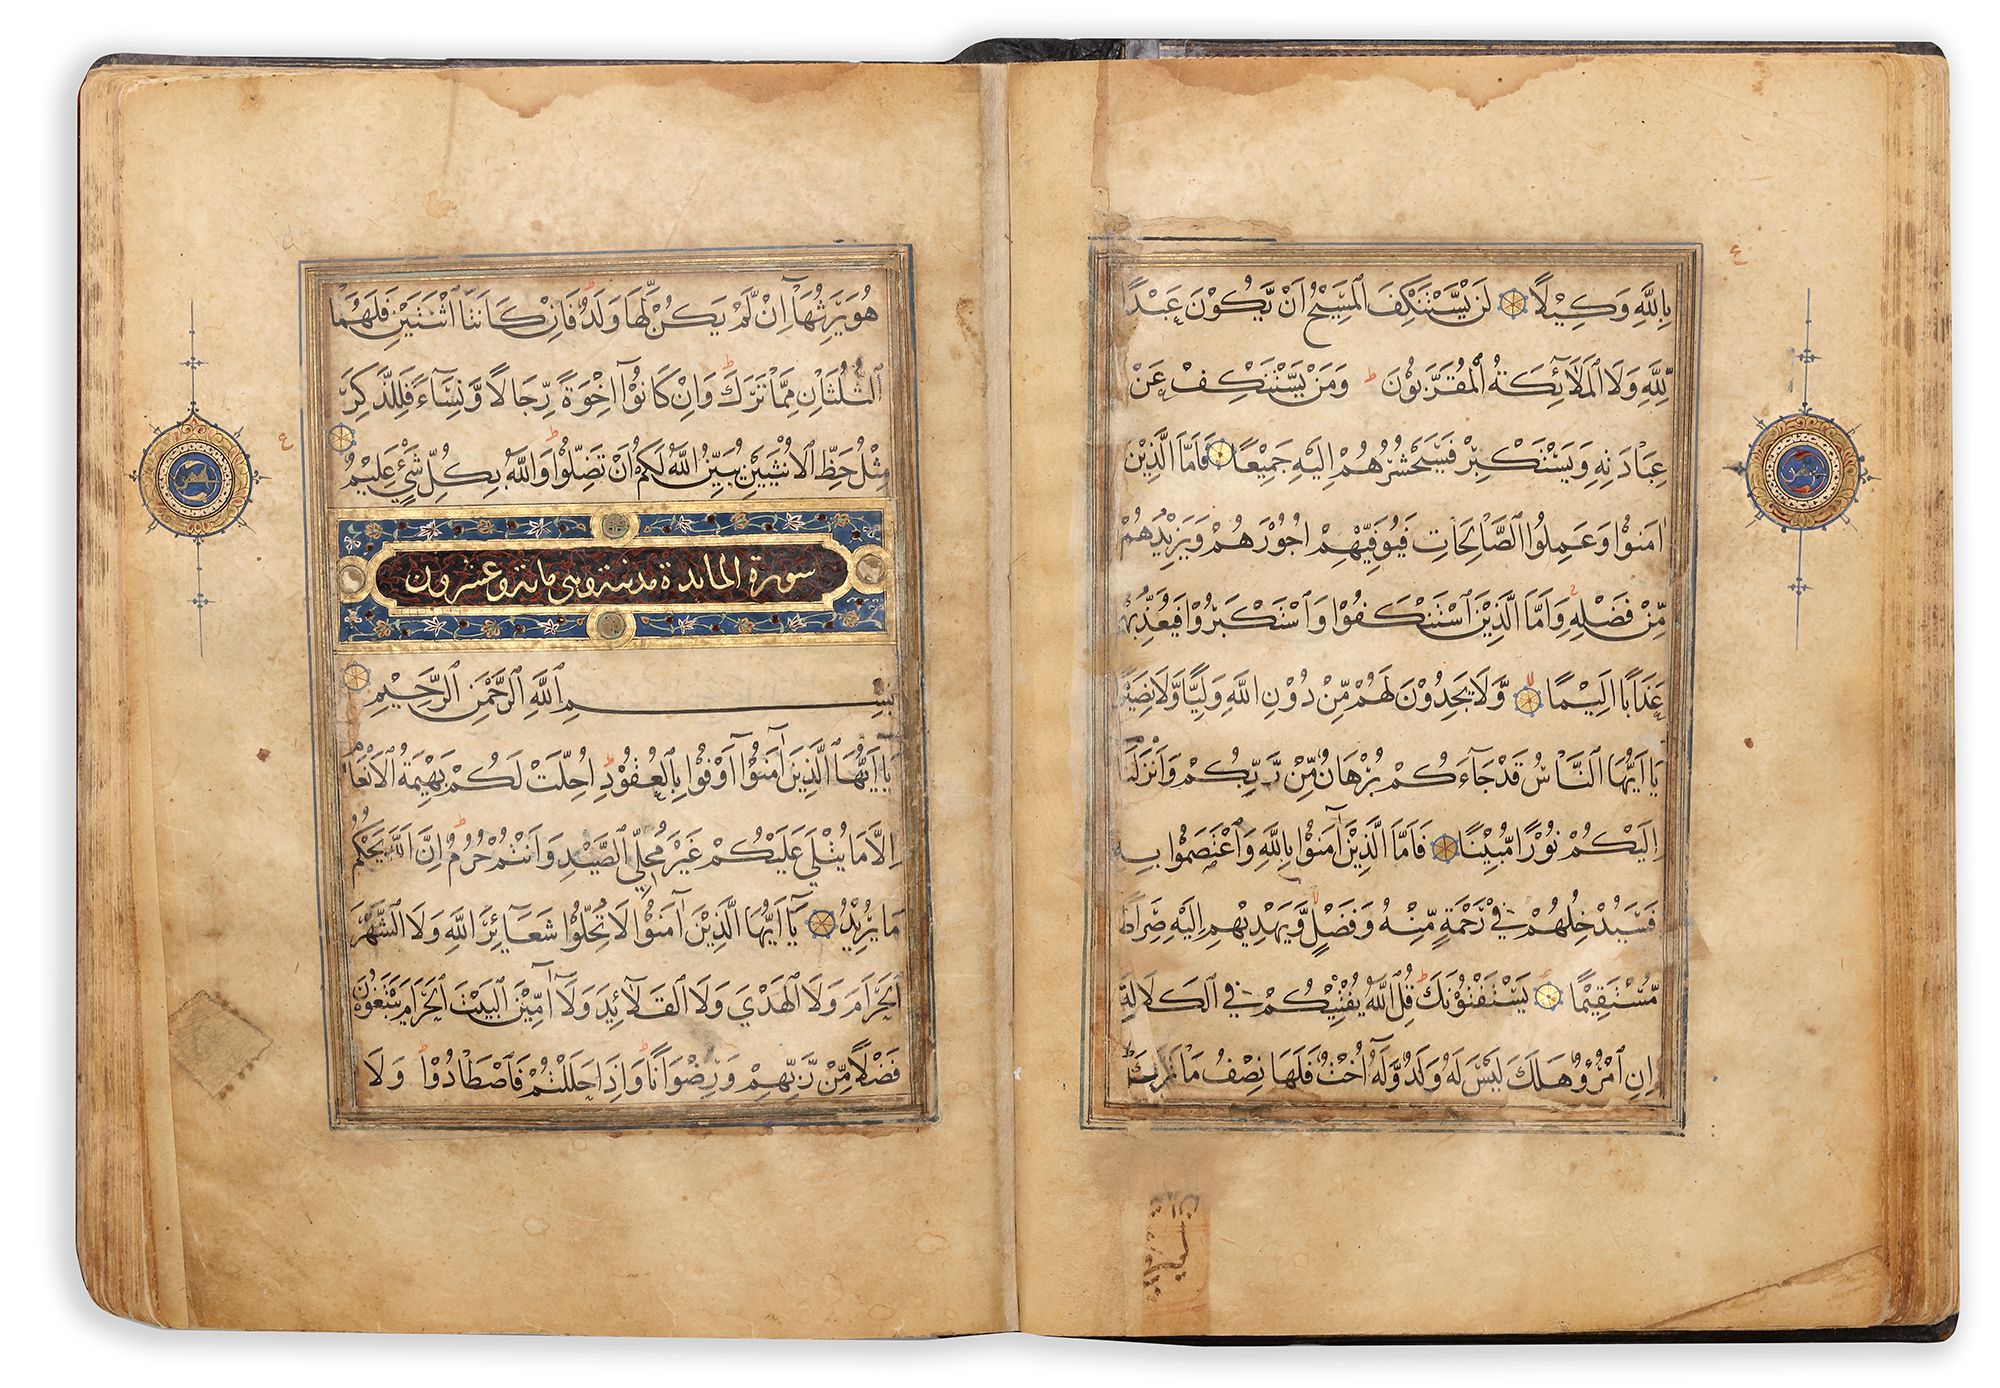 بِاللّٰهِ وَكِيْلًا لَنْ يَّسْتَنْكِفَ الْمَسِيْحُ اَنْ يَّكُوْنَ عَبْدًا
لِّلّٰهِ وَلَا الْمَلَآئِكَةُ الْمُقَرَّبُوْنَ ط وَمَنْ يَّسْتَنْكِفْ عَنْ
عِبَادَتِهِ وَيَسْتَكْبِرْ فَسَيَحْشُرُهُمْ اِلَيْهِ جَمِيْعًا فَاَمَّا الَّذِيْنَ
اٰمَنُوْا وَعَمِلُوا الصَّالِحَاتِ فَيُوَفِّيْهِمْ اُجُوْرَهُمْ وَيَزِيْدُهُمْ
مِّنْ فَضْلِهِ وَاَمَّا الَّذِيْنَ اسْتَنْكَفُوْا وَاسْتَكْبَرُوْا فَيُعَذِّبُهُمْ
عَذَابًا اَلِيْمًا وَّلَا يَجِدُوْنَ لَهُمْ مِّنْ دُوْنِ اللّٰهِ وَلِيًّا وَّلَا نَصِيْرًا
يَا اَيُّهَا النَّاسُ قَدْ جَآءَكُمْ بُرْهَانٌ مِّنْ رَّبِّكُمْ وَاَنْزَلْنَا
اِلَيْكُمْ نُوْرًا مُّبِيْنًا فَاَمَّا الَّذِيْنَ اٰمَنُوْا بِاللّٰهِ وَاعْتَصَمُوْا بِهِ
فَسَيُدْخِلُهُمْ فِيْ رَحْمَةٍ مِّنْهُ وَفَضْلٍ وَّيَهْدِيْهِمْ اِلَيْهِ صِرَاطًا
مُّسْتَقِيْمًا يَسْتَفْتُوْنَكَ ط قُلِ اللّٰهُ يُفْتِيْكُمْ فِي الْكَلَالَةِ
اِنِ امْرُؤٌ هَلَكَ لَيْسَ لَهُ وَلَدٌ وَّلَهُ اُخْتٌ فَلَهَا نِصْفُ مَا تَرَكَ
هُوَ يَرِثُهَا اِنْ لَّمْ يَكُنْ لَّهَا وَلَدٌ فَاِنْ كَانَتَا اثْنَتَيْنِ فَلَهُمَا
الثُّلُثَانِ مِمَّا تَرَكَ ط وَاِنْ كَانُوْا اِخْوَةً رِّجَالًا وَّنِسَآءً فَلِلذَّكَرِ
مِثْلُ حَظِّ الْاُنْثَيَيْنِ يُبَيِّنُ اللّٰهُ لَكُمْ اَنْ تَضِلُّوْا ط وَاللّٰهُ بِكُلِّ شَيْءٍ عَلِيْمٌ
سورة المايدة مدنية وهى ماية وعشرون
بِسْمِ اللّٰهِ الرَّحْمٰنِ الرَّحِيْمِ
يَا اَيُّهَا الَّذِيْنَ اٰمَنُوْا اَوْفُوْا بِالْعُقُوْدِ ط اُحِلَّتْ لَكُمْ بَهِيْمَةُ الْاَنْعَامِ
اِلَّا مَا يُتْلٰى عَلَيْكُمْ غَيْرَ مُحِلِّي الصَّيْدِ وَاَنْتُمْ حُرُمٌ ط اِنَّ اللّٰهَ يَحْكُمُ
مَا يُرِيْدُ يَا اَيُّهَا الَّذِيْنَ اٰمَنُوْا لَا تُحِلُّوْا شَعَآئِرَ اللّٰهِ وَلَا الشَّهْرَ
الْحَرَامَ وَلَا الْهَدْيَ وَلَا الْقَلَآئِدَ وَلَا اٰمِّيْنَ الْبَيْتَ الْحَرَامَ يَبْتَغُوْنَ
فَضْلًا مِّنْ رَّبِّهِمْ وَرِضْوَانًا ط وَاِذَا حَلَلْتُمْ فَاصْطَادُوْا ط وَلَا